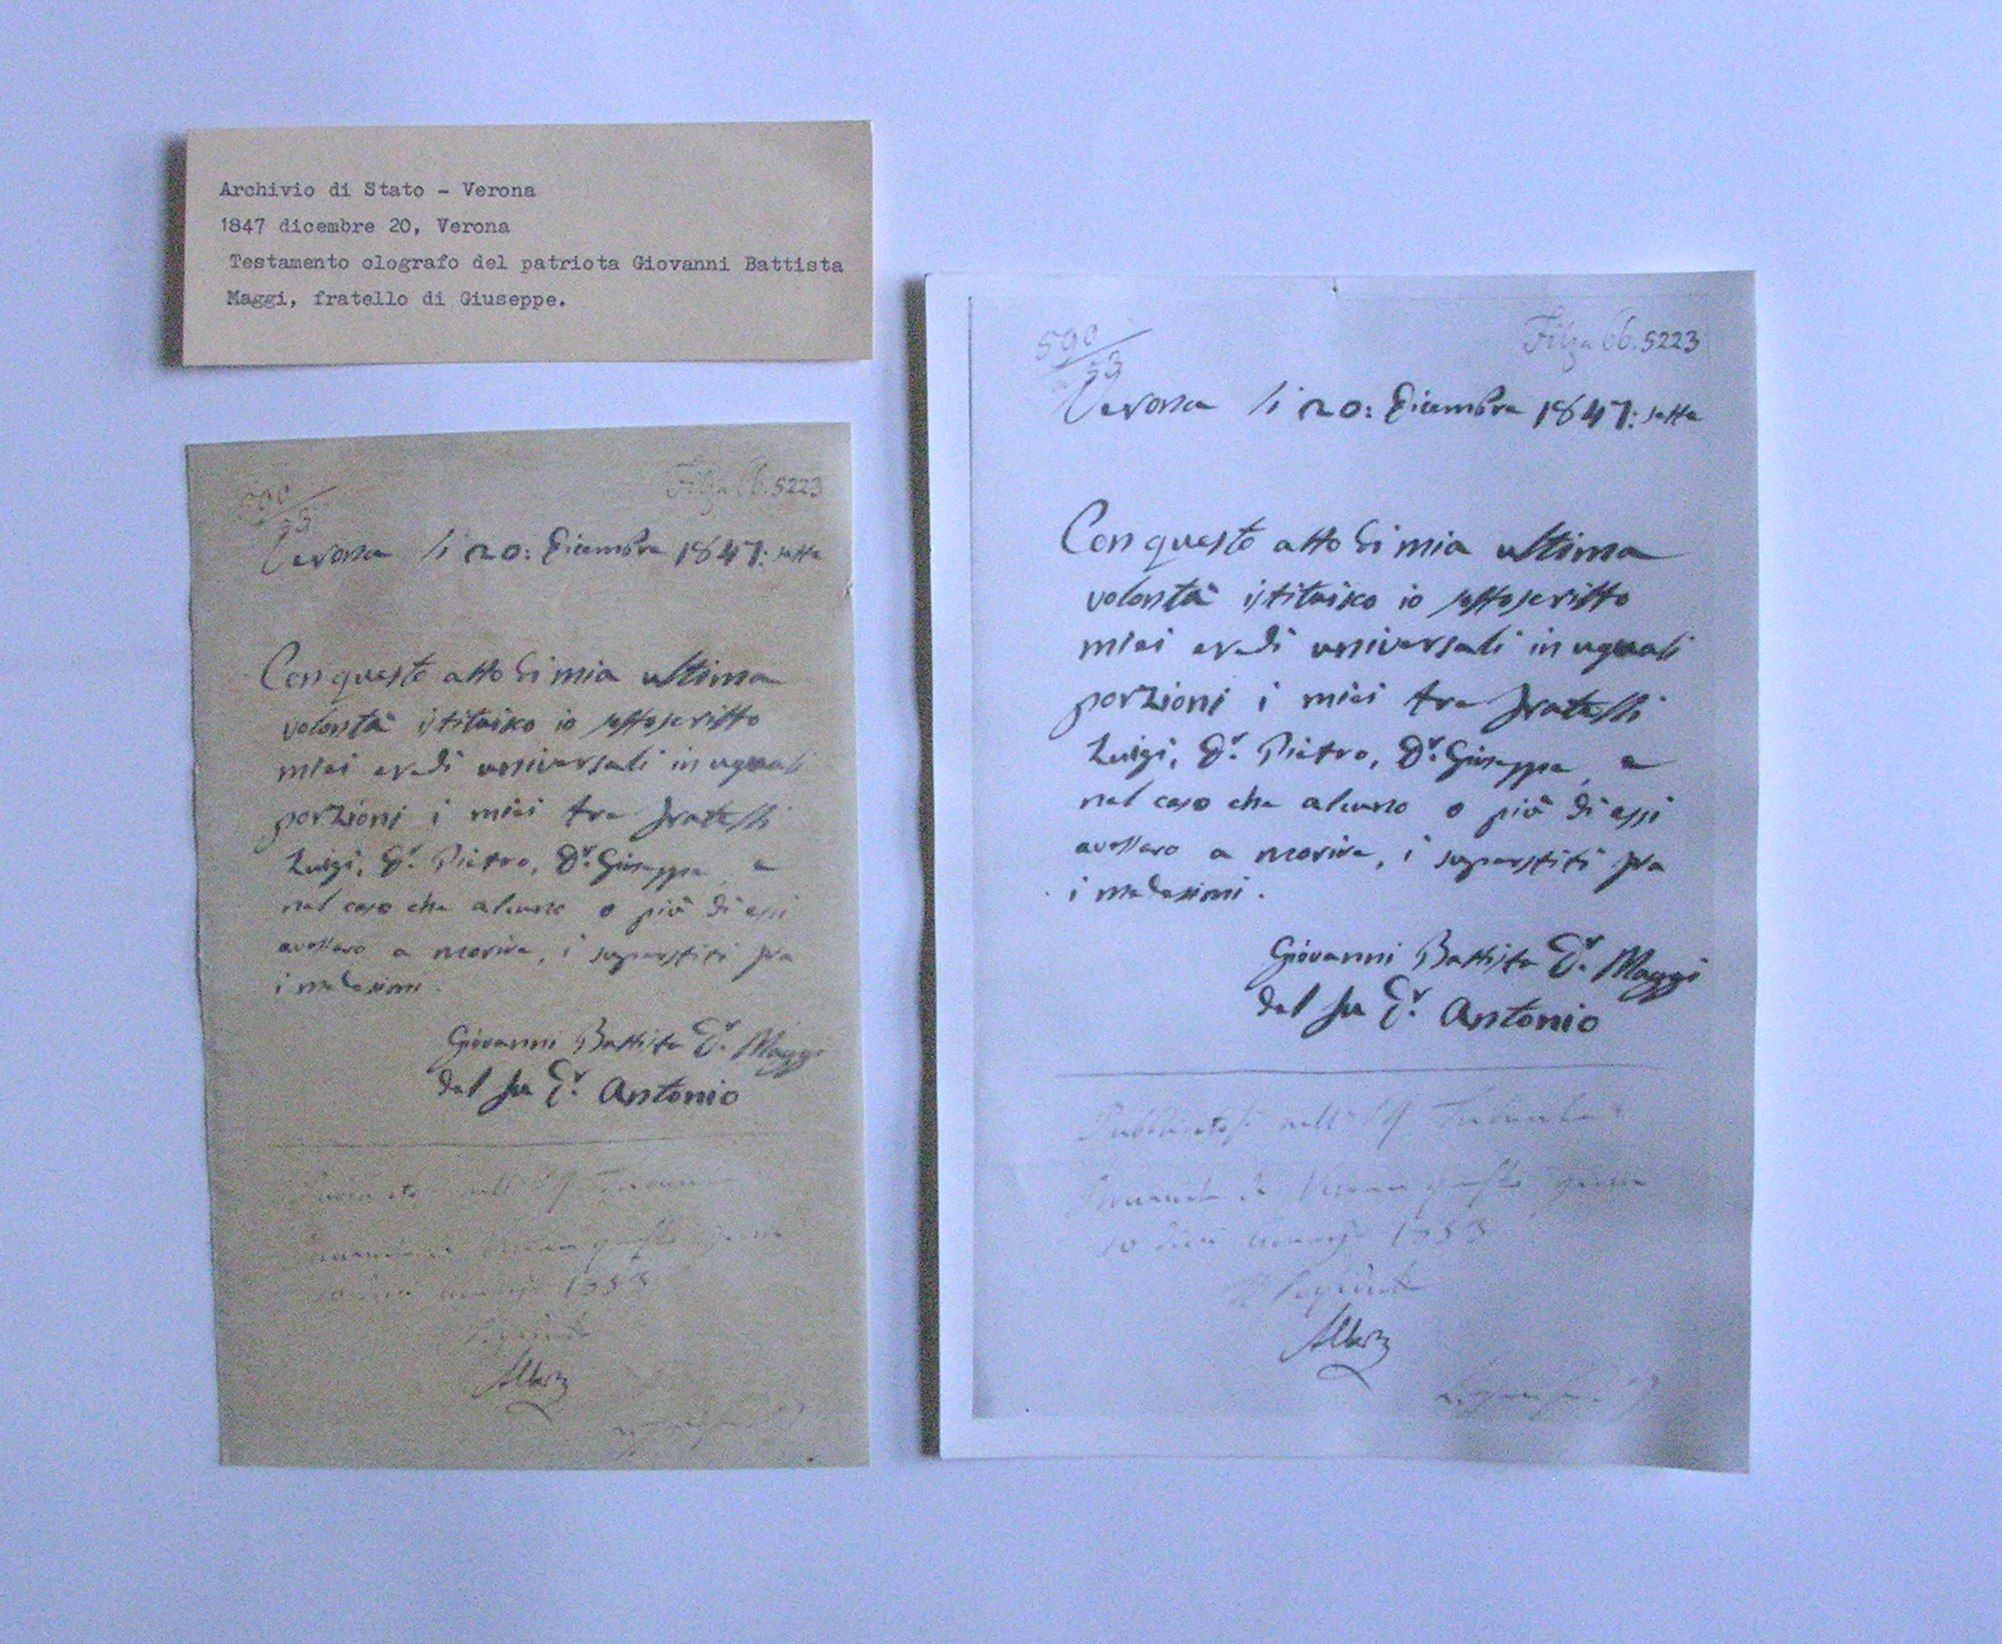 Archivio di Stato - Verona
1847 dicembre 20, Verona
Testamento olografo del patriota Giovanni Battista
Maggi, fratello di Giuseppe.
Filza bb. 5223
Verona li 20: Dicembre 1847: sette
Con questo atto di mia ultima
volontà istituisco io sottoscritto
miei eredi universali in uguali
porzioni i miei tre fratelli
Luigi, Dr. Pietro, Dr. Giuseppe, e
nel caso che alcuno o più di essi
avessero a morire, i superstiti fra
i medesimi.
Giovanni Battista Dr. Maggi
del fu Dr. Antonio
590
Filza bb. 5223
Verona li 20: Dicembre 1847: sette
Con questo atto di mia ultima
volontà istituisco io sottoscritto
miei eredi universali in uguali
porzioni i miei tre fratelli
Luigi, Dr. Pietro, Dr. Giuseppe, e
nel caso che alcuno o più di essi
avessero a morire, i superstiti fra
i medesimi.
Giovanni Battista Dr. Maggi
del fu Dr. Antonio
1853